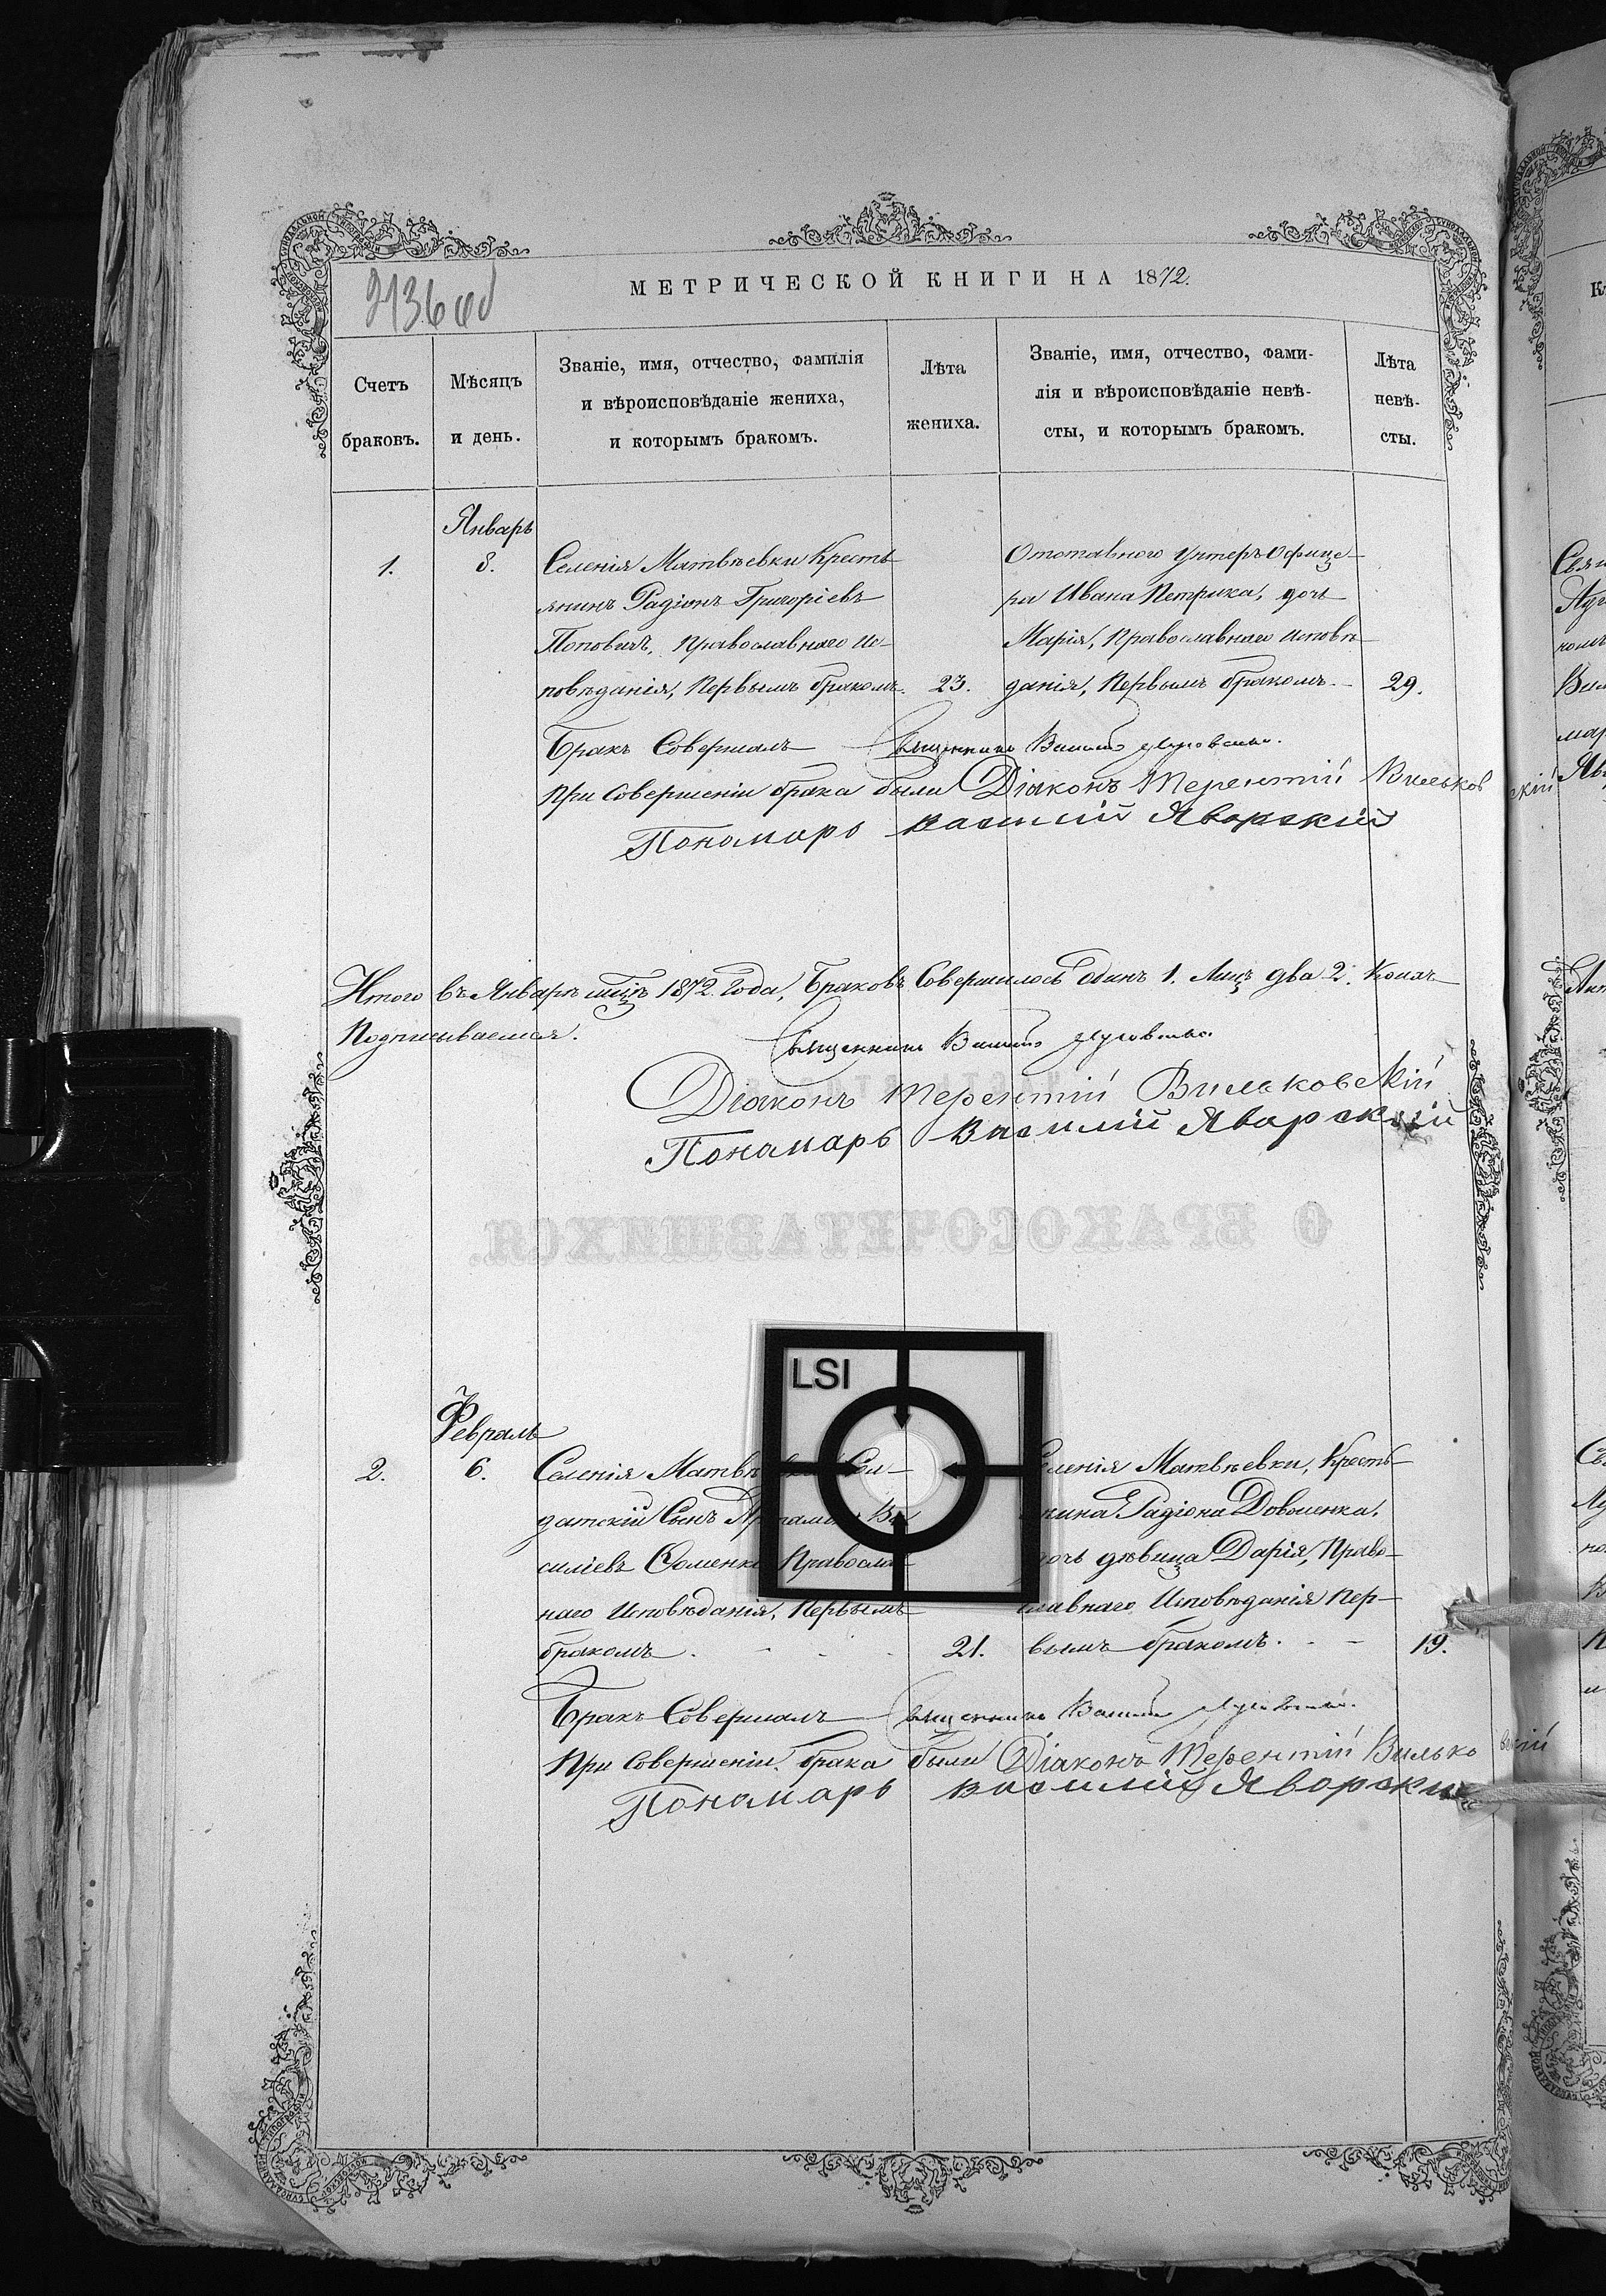 2136 об
МЕТРИЧЕСКОЙ КНИГИ НА 1872.
Счетъ браковъ.
Мѣсяцъ и день.
Званіе, имя, отчество, фамилія
и вѣроисповѣданіе жениха,
и которымъ бракомъ.
Лѣта жениха.
Званіе, имя, отчество, фами-
лія и вѣроисповѣданіе невѣ-
сты, и которымъ бракомъ.
Лѣта невѣ-
сты.
Январь
1. 8. Селенія Матвѣевки Кресть-
янинъ Радіонъ Григоріевъ
Поповичъ, Православнаго Ис-
повѣданія, Первымъ бракомъ. 23.
Отставного Унтеръ Офице-
ра Ивана Петрика, дочь
Марія, Православнаго исповѣ-
данія, Первымъ бракомъ. 29.
Бракъ Совершалъ Священникъ
При Совершеніи брака были Діаконъ Терентій Вильковскій
Пономарь Василій Яворскій
Итого въ Январѣ мцѣ 1872 Года, Браковъ Совершилось Одинъ 1. Лицъ два 2.
Подписываемся.
Священникъ
Діаконъ Терентій Вильковскій
Пономарь Василій Яворскій
О БРАКОСОЧЕТАВШИХСЯ.
LSI
Февраль
2. 6. Селенія Сол-
датскій Сынъ
силіевъ Православ-
наго Исповѣданія, Первымъ
бракомъ. 21.
Матвѣевки, Кресть-
Радіона Довженка,
дочь дѣвица Дарія, Право-
славнаго Исповѣданія Пер-
вымъ бракомъ. 19.
Бракъ Совершалъ Священникъ
При Совершеніи брака были Діаконъ Терентій Вильковскій
Пономарь Василій Яворскій